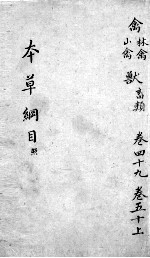 禽 林禽 山禽 獸 畜類 卷四十九 卷五十上
本草綱目